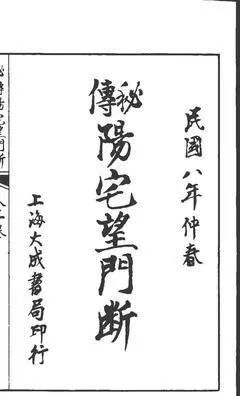 民國八年仲春
秘傳
陽宅望門断
上海大成書局印行
秘傳陽宅望門断